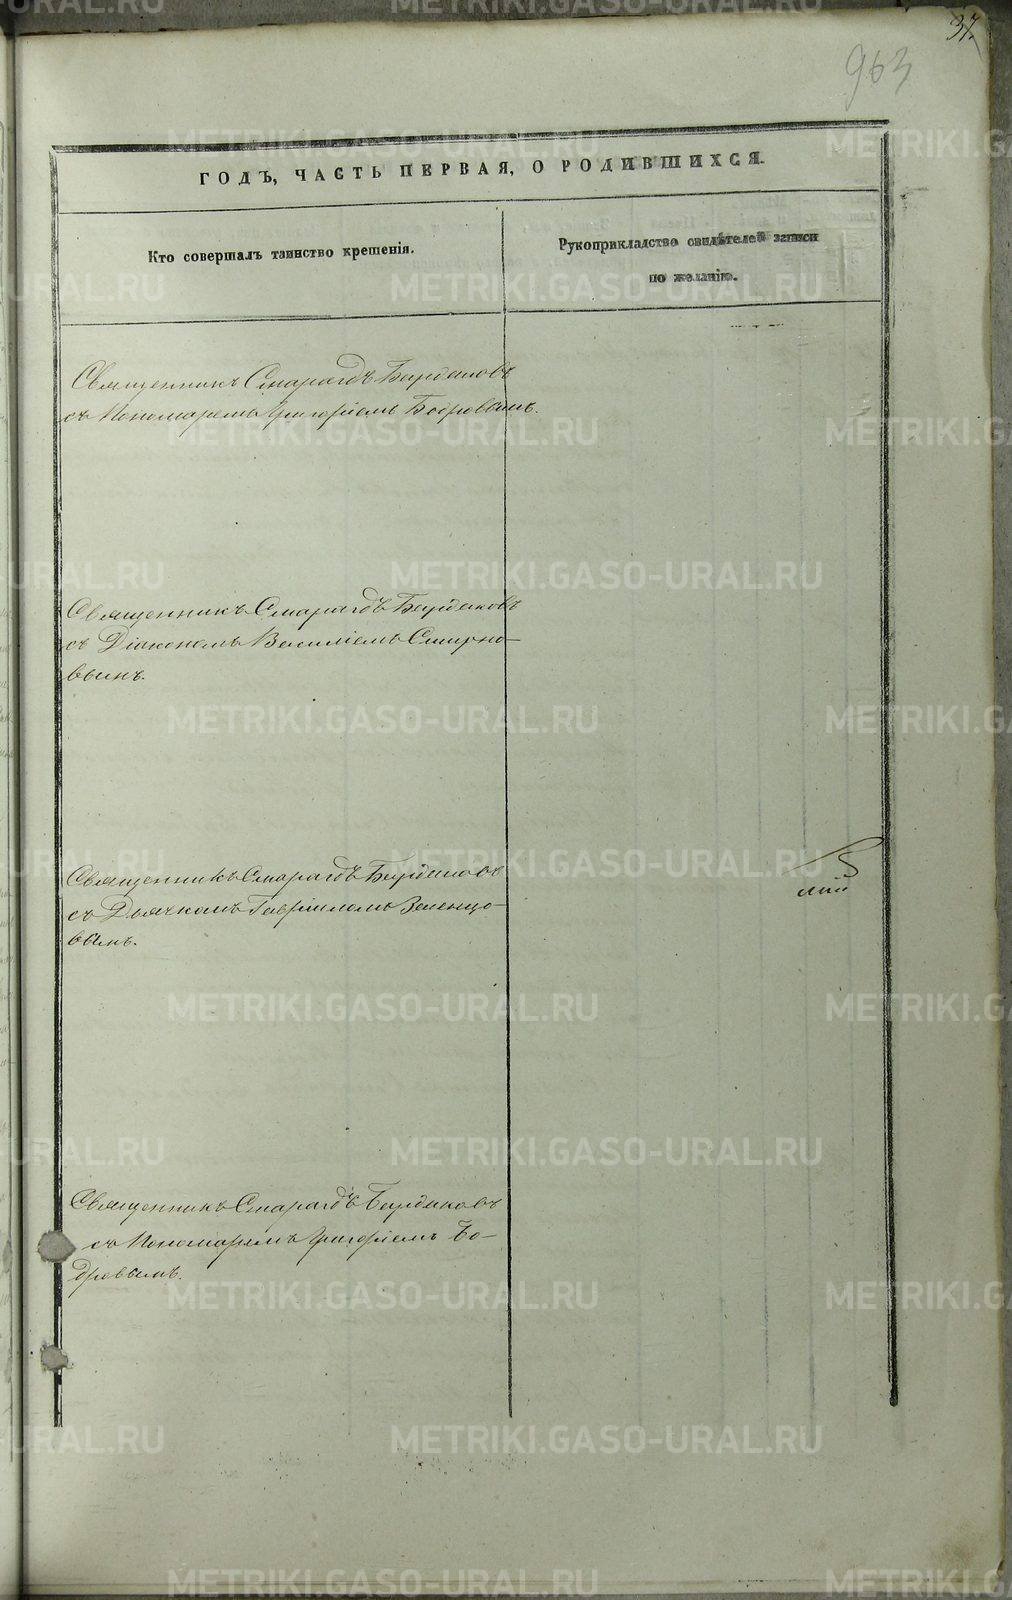 37.
963
ГОДЪ, ЧАСТЬ ПЕРВАЯ, О РОДИВШИХСЯ.
Кто совершалъ таинство крещенія.
Рукоприкладство свидѣтелей записи
по желанію.
Священникъ Смарагдъ Бирдюковъ
съ Пономаремъ Григоріемъ Бодровымъ.
Священникъ Смарагдъ Бирдюковъ
съ Діакономъ Василіемъ Смирно-
вымъ.
Священникъ Смарагдъ Бирдюковъ
съ Дьячкомъ Гавріиломъ Зеленцо-
вымъ.
Священникъ Смарагдъ Бирдюковъ
съ Пономаремъ Григоріемъ Бо-
дровымъ.
METRIKI.GASO-URAL.RU